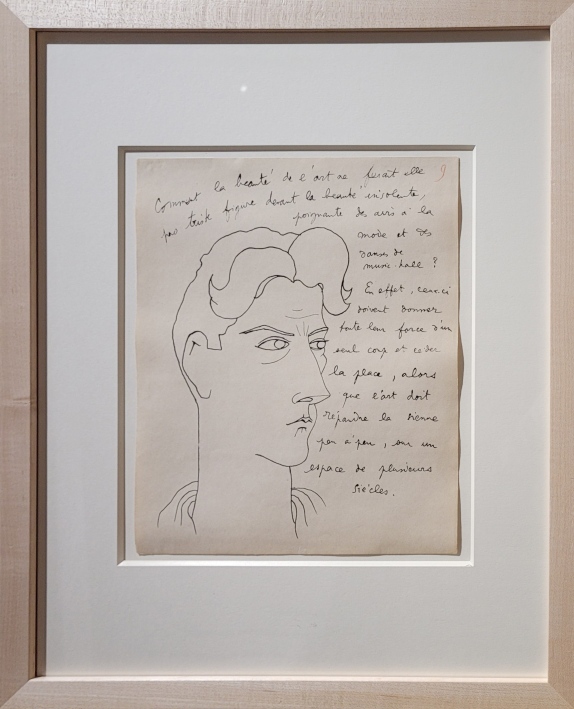 Comment la beauté de l'art ne ferait elle
9
pas triste figure devant la beauté insolente,
poignante des airs à la
mode et des
danses de
music-hall ?
En effet, ceux-ci
doivent donner
toute leur force d'un
seul coup et céder
la place, alors
que l'art doit
répandre la sienne
peu à peu, sur un
espace de plusieurs
siècles.